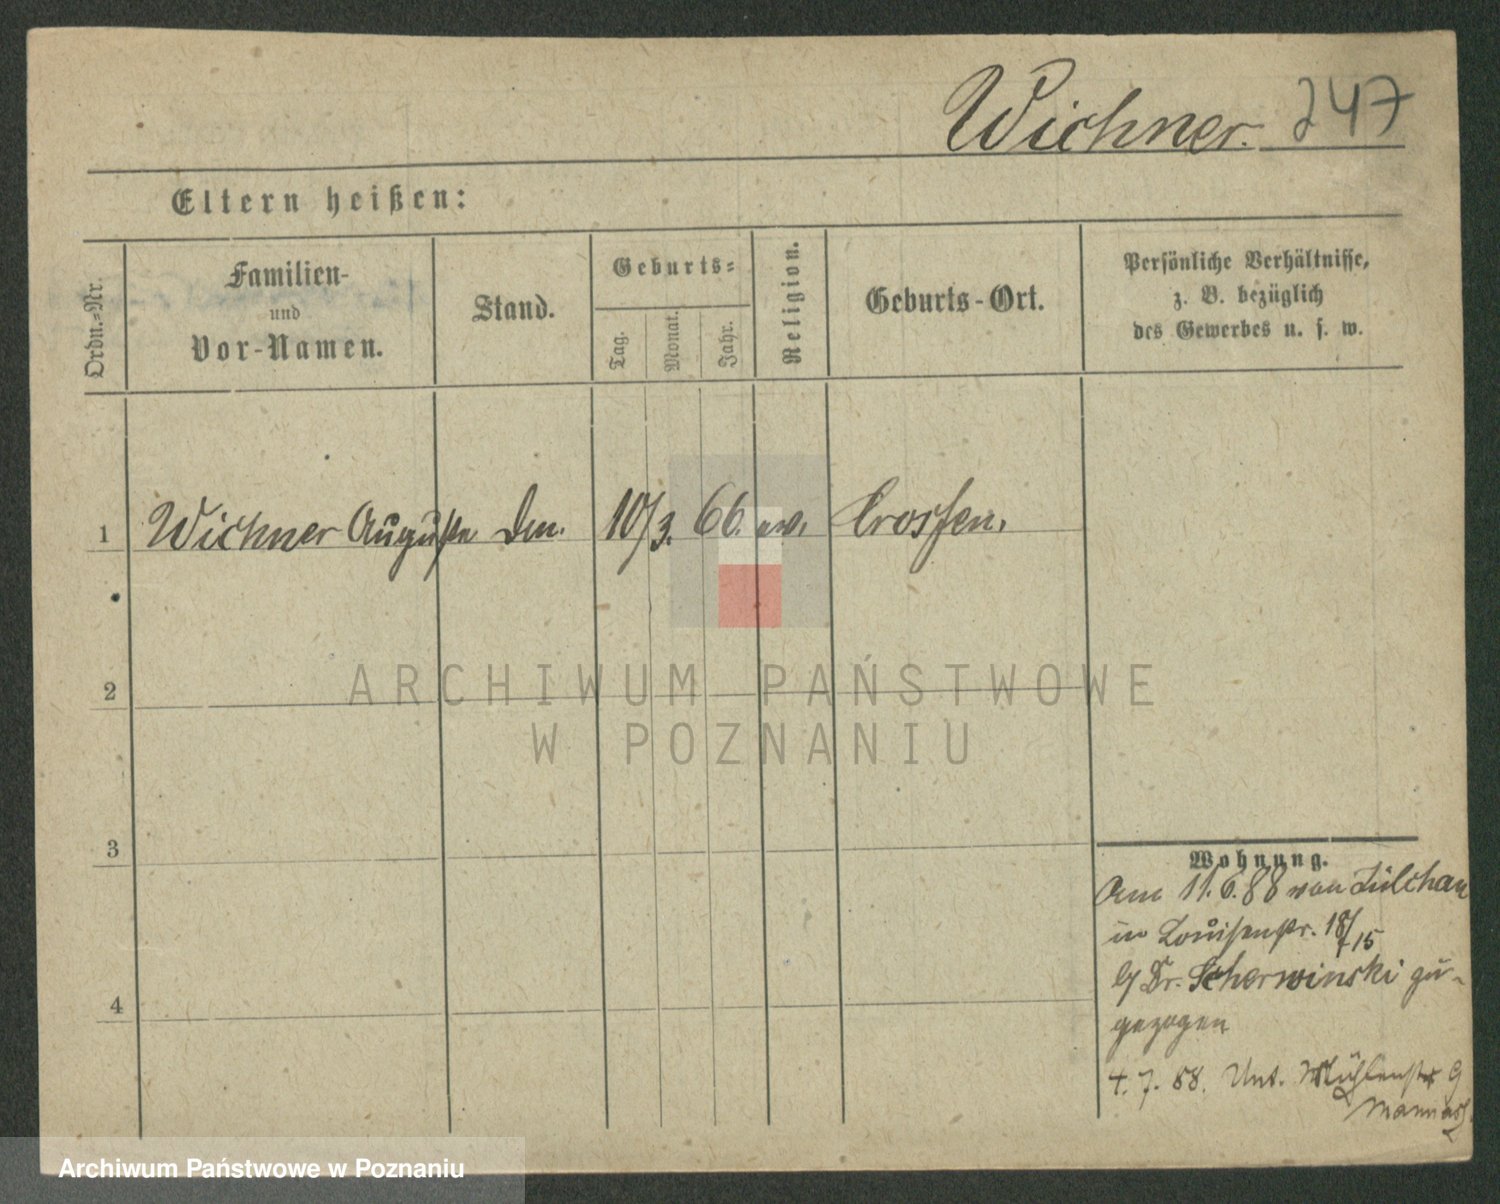 Wichner. 247
Eltern heißen:
Ordn.-Nr.
Familien-
und
Vor-Namen.
Stand.
Geburts-
Tag.
Monat.
Jahr.
Religion.
Geburts-Ort.
Persönliche Verhältnisse,
z. B. bezüglich
des Gewerbes u. s. w.
1 Wichner Auguste 10/3. 66. ev. Crossen.
2
3
4
Wohnung.
Am 11.6.88 von Züllchau
in Louisenstr. 18/15
b/ Dr. Scherwinski zu-
gezogen
4.7.88. Unt. Mühlenstr 9
ARCHIWUM PAŃSTWOWE
W POZNANIU
Archiwum Państwowe w Poznaniu